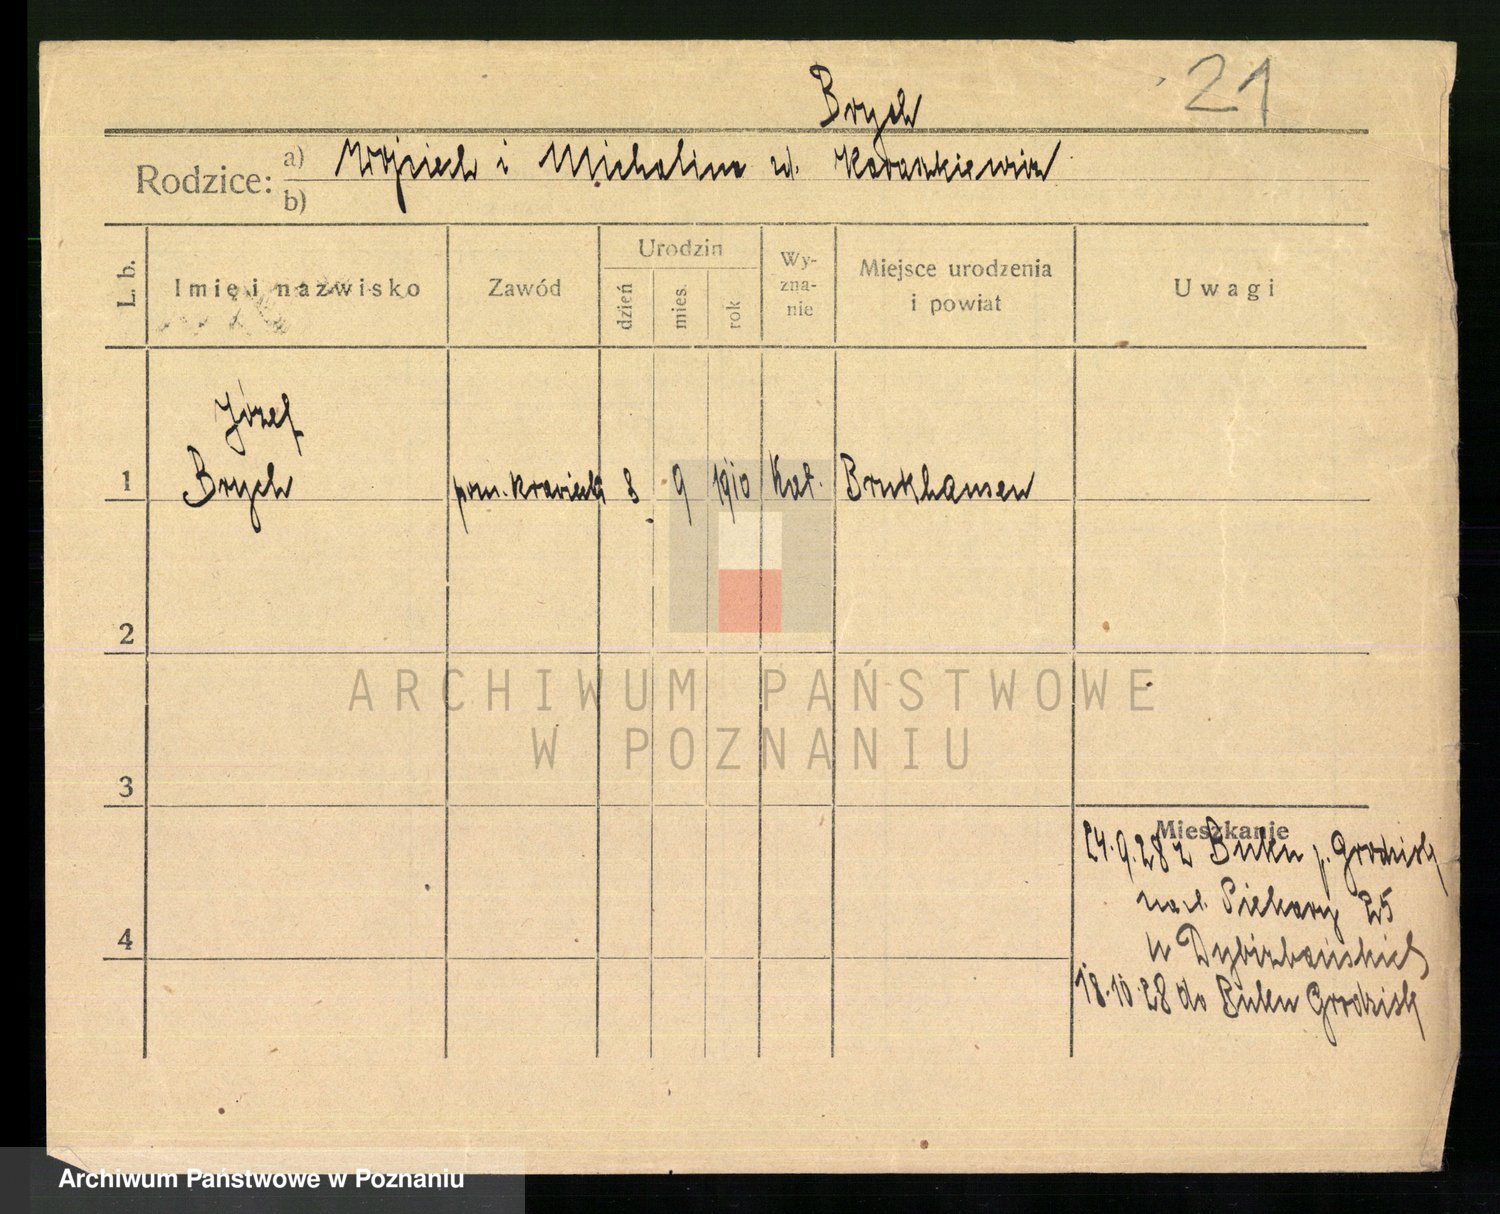 21
Brych
Rodzice: a) Wojciech i Michalina ur. Karaszkiewicz
b)
L. b.
Imię i nazwisko
Zawód
Urodzin
dzień
mies.
rok
Wy-
zna-
nie
Miejsce urodzenia
i powiat
Uwagi
Józef
1 Brych pom. krawiecki 8 9 1910 Kat. Brukhausen
2
3
4
Mieszkanie
24.9.28 z Buku p. Grodzisk
Piekary 25
u
18.10.28 do Buku Grodzisk
ARCHIWUM PAŃSTWOWE
W POZNANIU
Archiwum Państwowe w Poznaniu